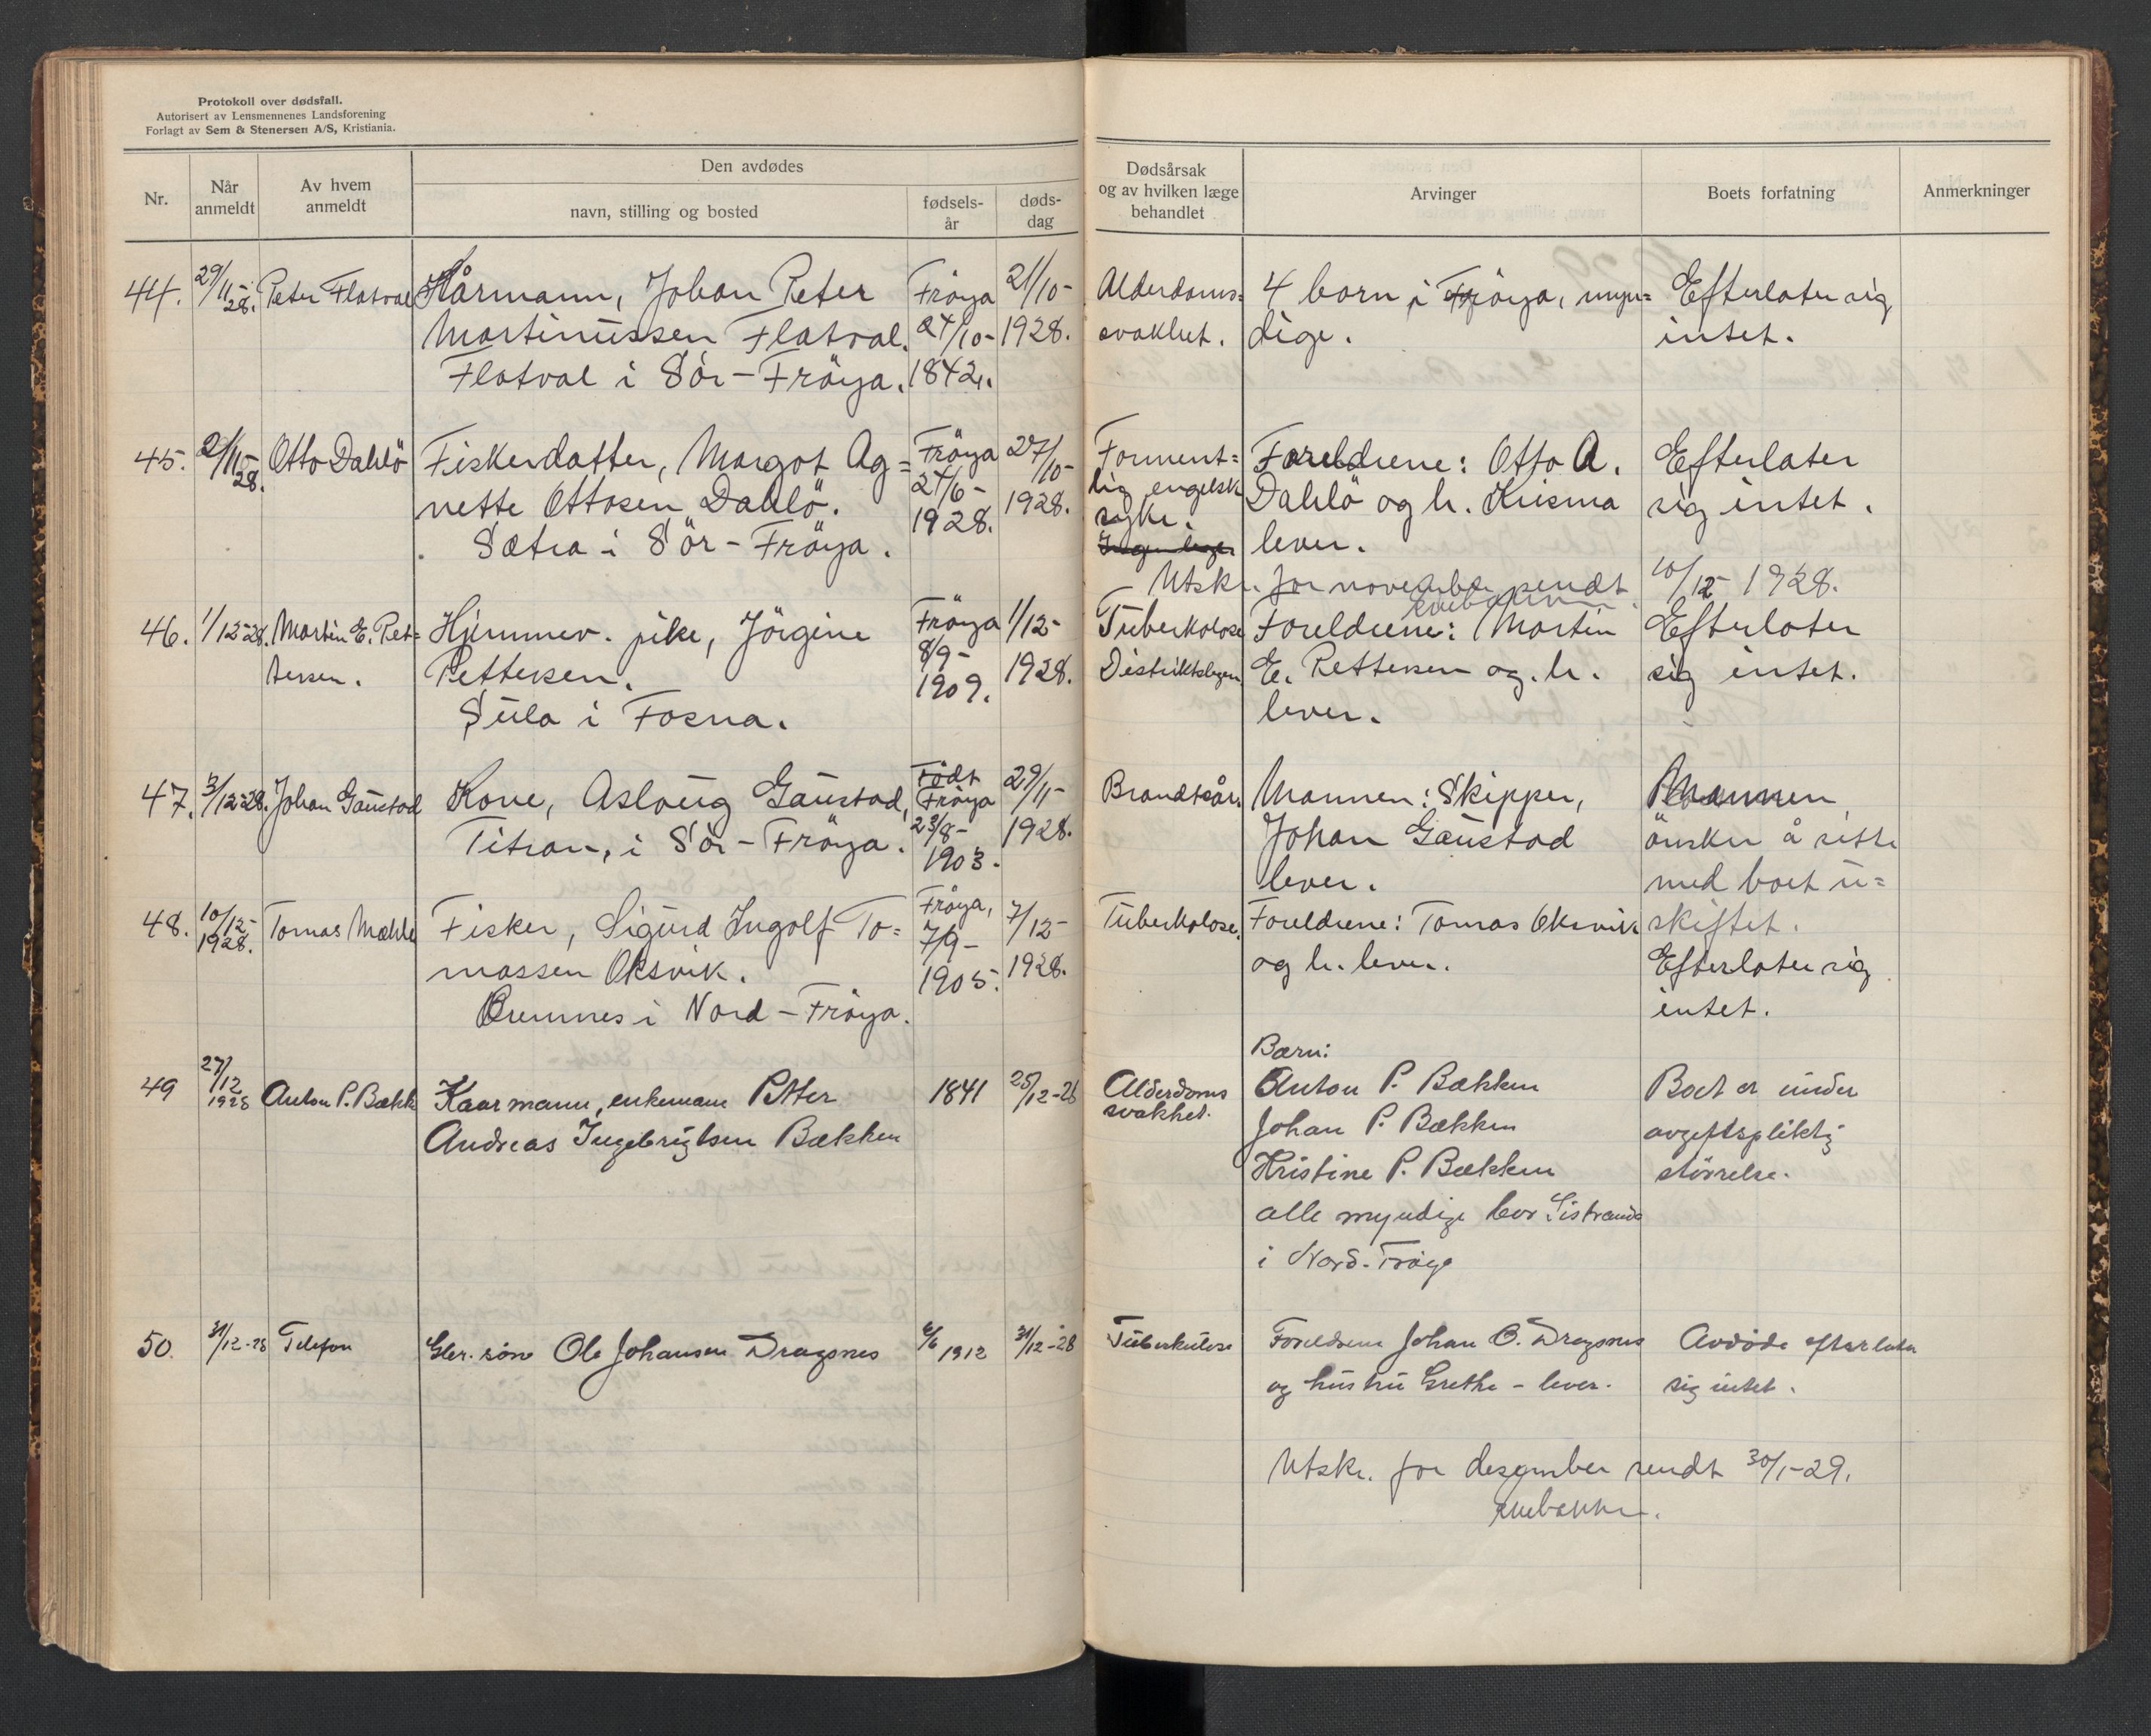 Protokoll over dødsfall.
Autorisert av Lensmennenes Landsforening
Forlagt av Sem & Stenersen A/S, Kristiania.
Nr.
Når
anmeldt
Av hvem
anmeldt
Den avdødes
navn, stilling og bosted
fødsels-
år
døds-
dag
Dødsårsak
og av hvilken læge
behandlet
Arvinger
Boets forfatning
Anmerkninger
44.
29/11-
28.
Peter Flatval
Kårmann, Johan Peter
Martinussen Flatval.
Flatval i Sör-Fröya.
Fröya
24/10-
1842.
21/10-
1928.
Alderdoms=
svakhet.
4 born i Fröya, myn=
dige.
Efterlater sig
intet.
45.
2/11-
28.
Otto Dahlö
Fiskerdatter, Margot Ag=
nette Ottosen Dahlö.
Sætra i Sör-Fröya.
Fröya
24/6-
1928.
27/10-
1928.
Forment=
lig engelsk
syke.
Foreldrene: Otto A.
Dahlö og h. Krisma
lever.
Efterlater
sig intet.
Utskr. for november sendt 10/12- 1928.
46.
1/12-28.
Martin E. Pet=
tersen.
Hjemmev. pike, Jörgine
Pettersen.
Sula i Fosna.
Fröya
8/9-
1909.
1/12-
1928.
Tuberkolose
Distriktslegen
Foreldrene: Martin
E. Pettersen og h.
lever.
Efterlater
sig intet.
47.
3/12-28.
Johan Gaustad
Kone, Aslaug Gaustad,
Titran, i Sör-Fröya.
Födt
Fröya
23/8-
1903.
29/11-
1928.
Brandsår.
Mannen: Skipper,
Johan Gaustad
lever.
Mannen
önsker å sitte
med boet u=
skiftet.
48.
10/12-
1928.
Tomas Mæhle
Fisker, Sigurd Ingolf To=
massen Oksvik.
Bremnes i Nord-Fröya.
Fröya,
7/9-
1905.
7/12-
1928.
Tuberkolose.
Foreldrene: Tomas Oksvik
og h. lever.
Efterlater sig
intet.
49
27/12
1928
Anton P. Bækk
Kaarmann, enkemann Petter
Andreas Ingebrigtsen Bækken
1841
25/12-28
Alderdoms
svakhet.
Barn:
Anton P. Bækken
Johan P. Bækken
Kristine P. Bækken
alle myndige bor Sistrand
i Nord-Fröya
Boet er under
avgiftspliktig
störrelse.
50.
31/12-28
Telefon
Gbr. sön Ole Johansen Dragsnes
6/6 1912
31/12-28
Tuberkulose
Foreldrene Johan O. Dragsnes
og hustru Grethe - lever.
Avdöde efterlater
sig intet.
Utskr. for desember sendt 30/1-29.